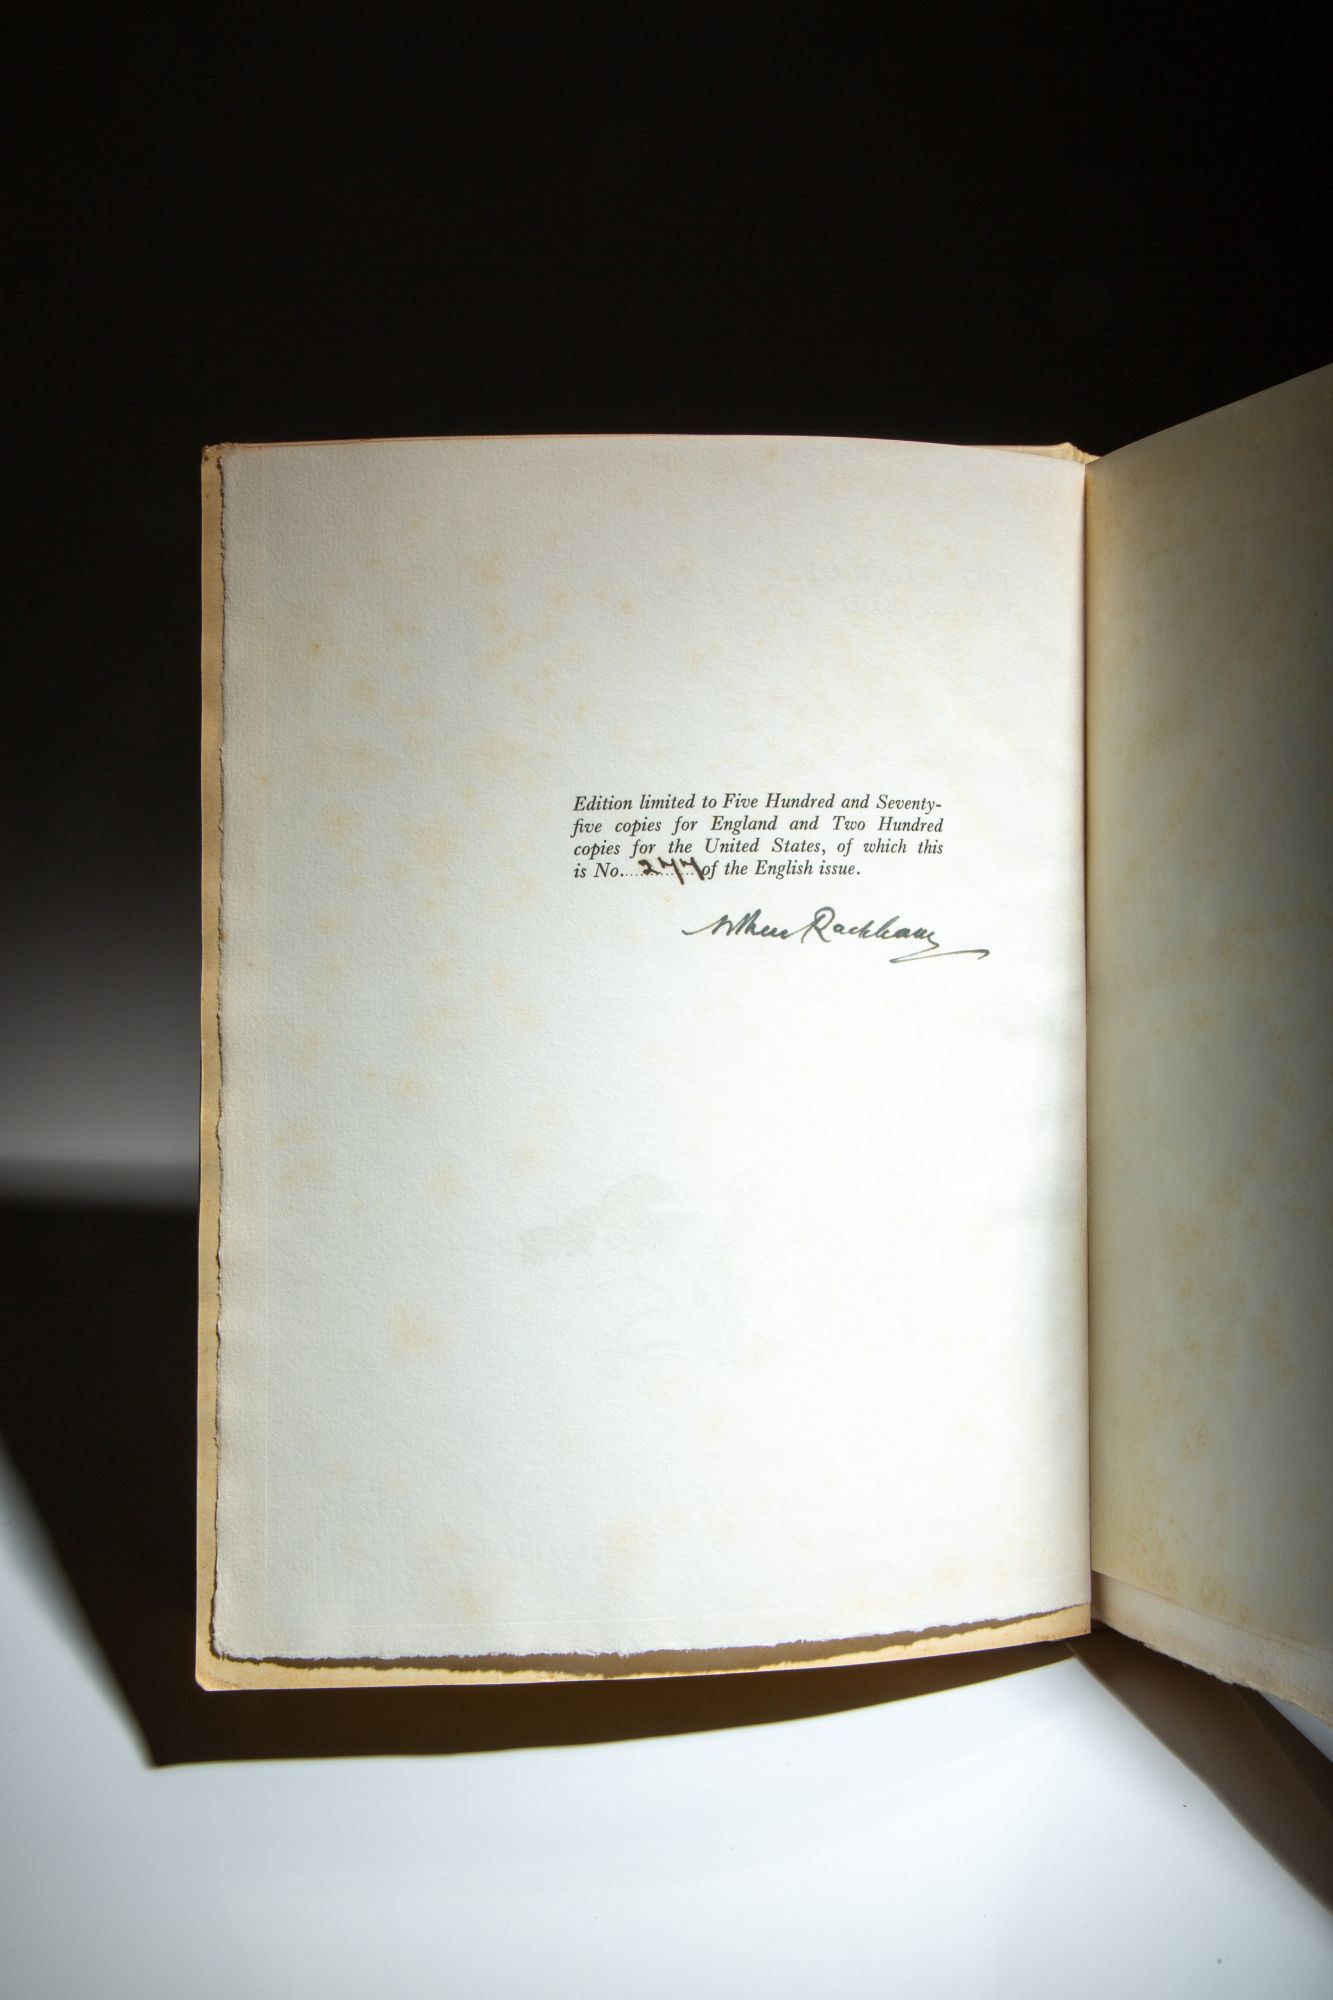 Edition limited to Five Hundred and Seventy-
five copies for England and Two Hundred
copies for the United States, of which this
is No.....277...of the English issue.
Arthur Rackham